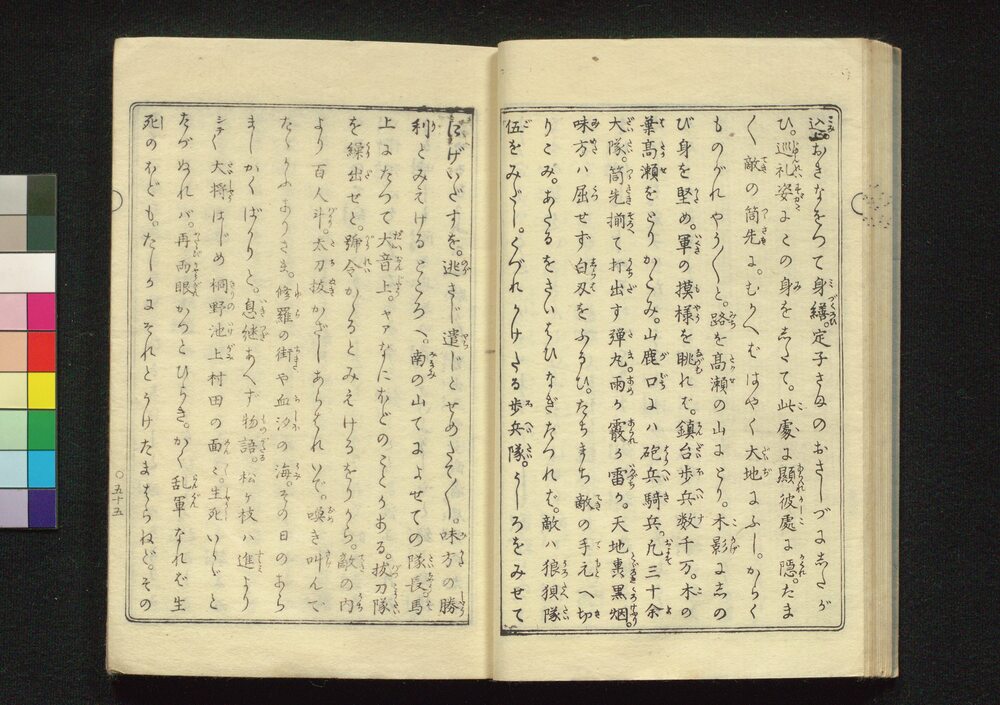 込。おきなをつて身繕。定子さまのおさしづにしたが
ひ。巡礼姿にこの身をしたて。此處に顕彼處に隠。たま
く敵の筒先に。むかへばはやく大地にふし。からく
ものがれやう〳〵と。路を高瀬の山にとり。木影にしの
び身を堅め。軍の摸様を眺れば。鎮台歩兵数千万。木の
葉高瀬をとりかこみ。山鹿口には砲兵騎兵。凡三十余
大隊。筒先揃て打出す弾丸雨か霰か雷か。天地裏黒烟。
味方ハ屈せず白刃をふるひ。たちまち敵の手元へ切
りこみ。あたるをさいはひなぎたつれば。敵ハ狼狽隊
伍をみだし。くづれかけたる歩兵隊。うしろをみせて
にげいだすを。逃さじ遣じとせめたてし。味方の勝
利とみえけるところへ。南の山てによせての隊長馬
上にたつて大音上。ヤァなにほどのことかある。抜刀隊
を繰出せと。号令かゝるとみえけるをりから。敵の内
より百人斗。太刀抜かざしあらはれいで。嗅き叫んで
たゝかふありさま。修羅の街や血汐の海。その日のあら
ましかくばかりと。息継あへず物語。松ヶ枝ハ進より
シテ大将はじめ桐野池上村田の面々。生死いかゞと
たづぬれバ。再両眼かつとひらき。かく乱軍なれば生
死のほども。たしかにそれとうけたまはらねど。その
〇五十五